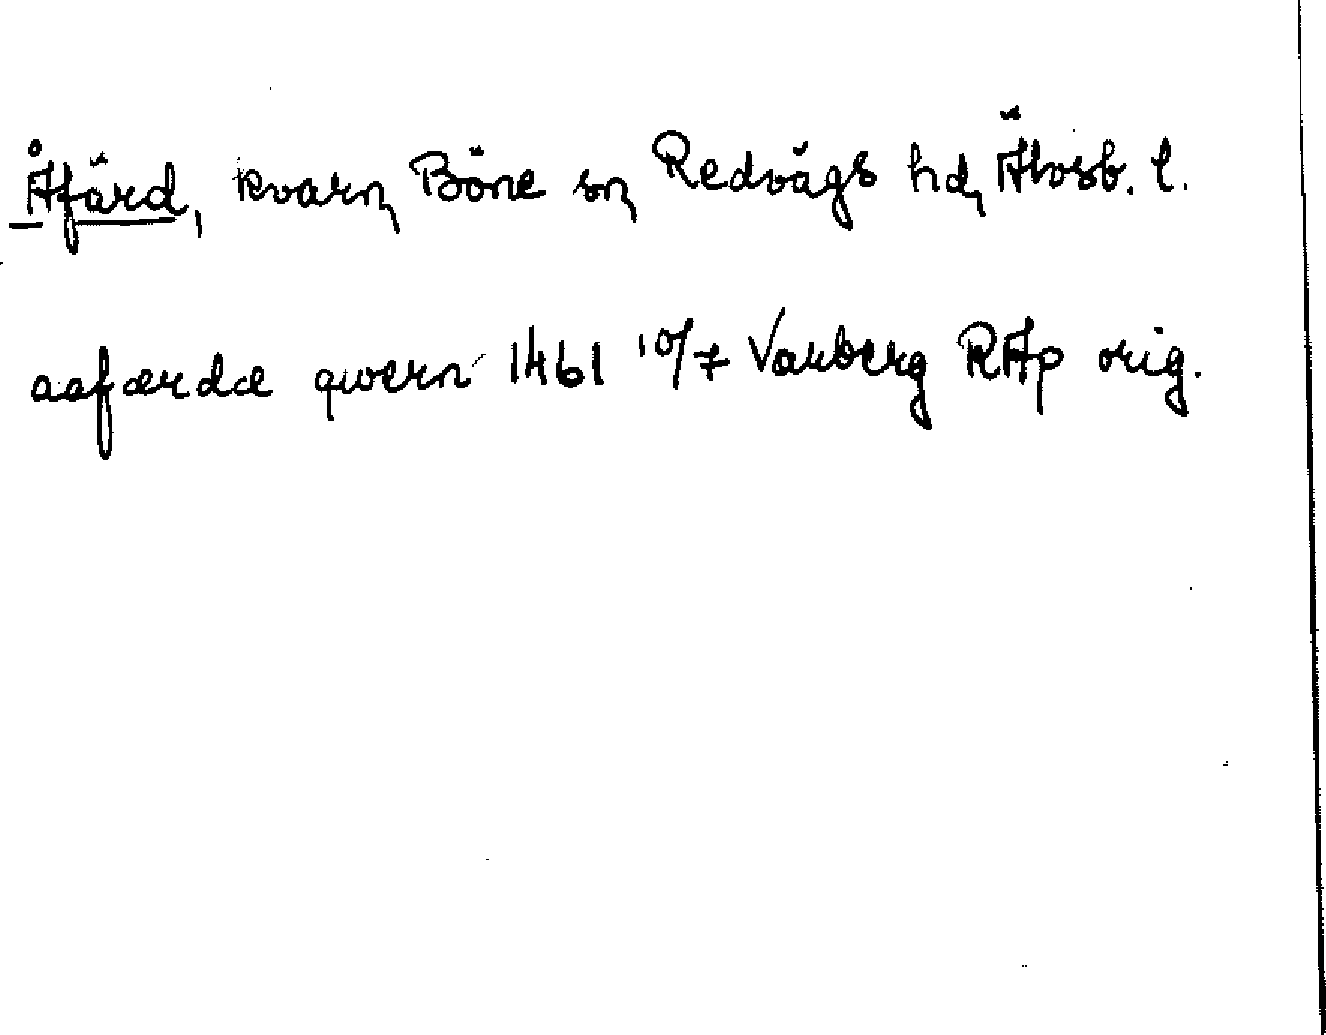 Åfärd, kvarn, Böne sn, Redvägs hd, Älvsb. l.
aafærdæ qwern 1461 10/7 Varberg RAp orig.